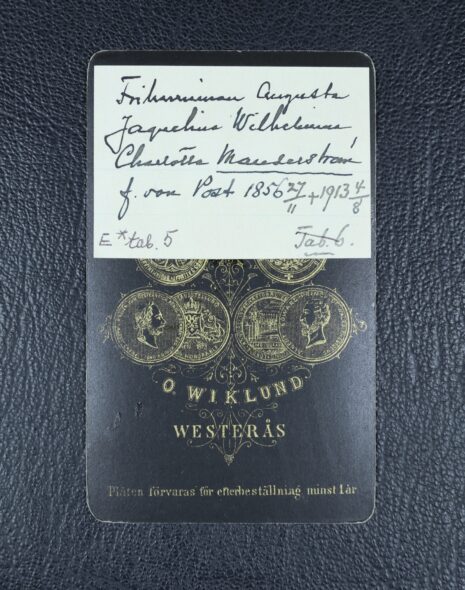 Friherrinnan Augusta
Jaquelina Wilhelmina
Charlotta Manderström
f. von Post 1856 27/11 +1913 4/8
E* tab. 5 Tab. 6.
O. WIKLUND
WESTERÅS
Plåten förvaras för efterbeställning minst 1 år